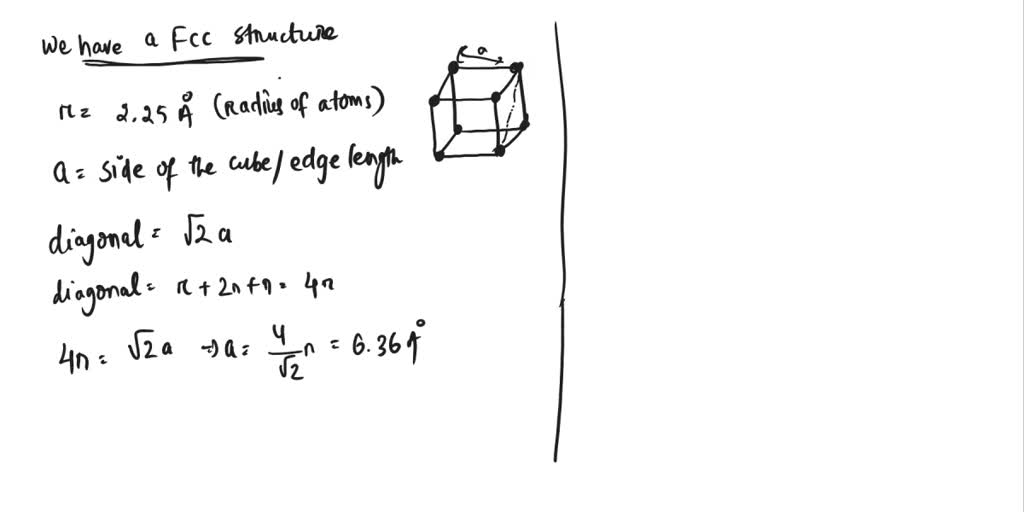 We have a Fcc structure
a
r = 2.25 Å (Radius of atoms)
a = side of the cube/edge length
diagonal = √2 a
diagonal = r + 2r + r = 4r
4r = √2 a → a = 4/√2 r = 6.36 Å